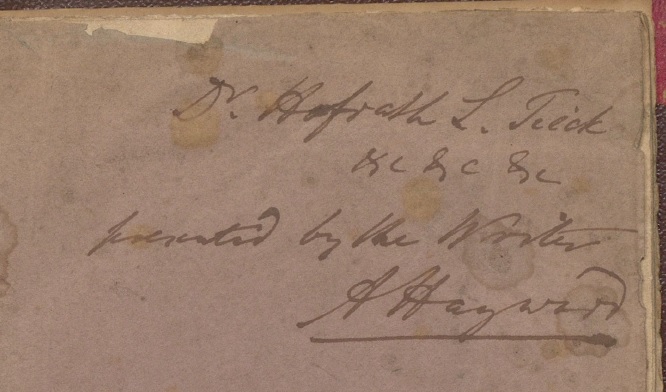 Dr. Hofrath L. Tieck
&c &c &c
presented by the Writer
A Hayward